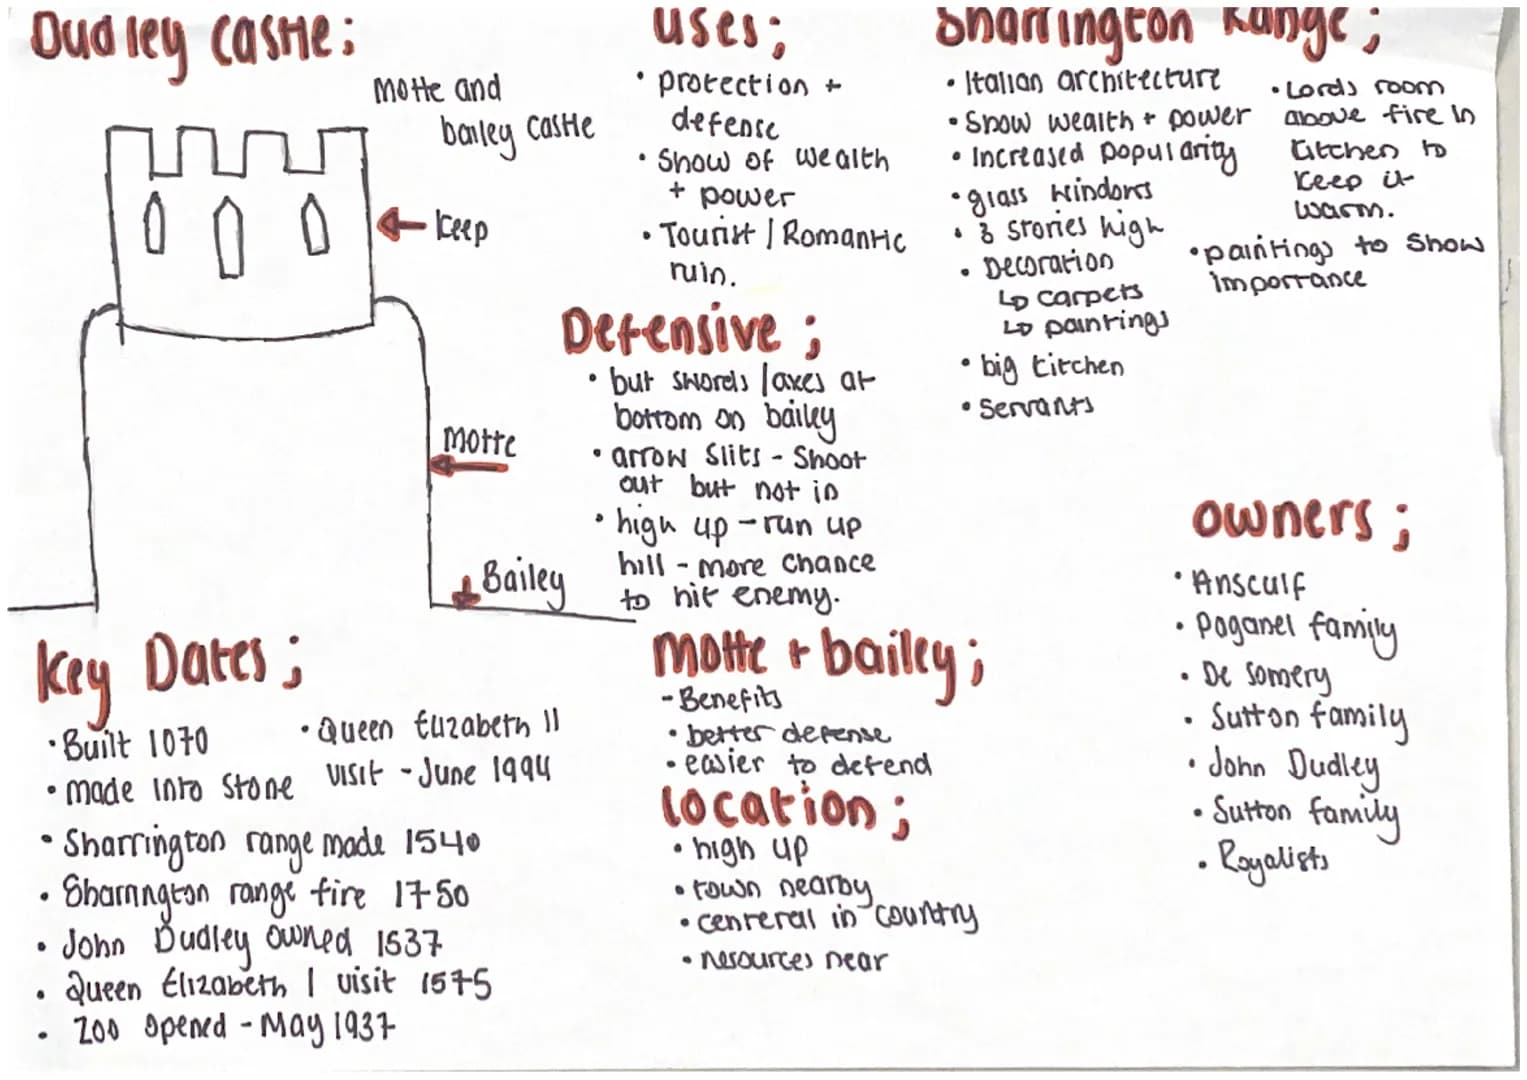 Dudley castle;
motte and
bailey castle
Keep
motte
Bailey
uses;
• protection +
defense
• Show of wealth
+ power
• Tourist / Romantic
ruin.
Defensive ;
• but swords /axes at
bottom on bailey
• arrow slits - Shoot
out but not in
• high up - run up
hill - more chance
to hit enemy.
Sharrington Range;
• Italian architecture
• Show wealth + power
• Increased popularity
• glass windows
• 3 stories high
• Decoration
↳ carpets
↳ paintings
• big kitchen
• Servants
• Lords room
above fire in
kitchen to
keep it
warm.
• paintings to show
importance
Key Dates;
• Built 1070
• made into stone
• Queen Elizabeth II
visit - June 1994
• Sharrington range made 1540
• Sharrington range fire 1750
• John Dudley owned 1537
• Queen Elizabeth I visit 1575
• Zoo opened - May 1937
motte + bailey;
- Benefits
• better defense
• easier to defend
location;
• high up
• town nearby
• centeral in country
• resources near
owners;
• Ansculf
• Paganel family
• De Somery
• Sutton family
• John Dudley
• Sutton family
• Royalists